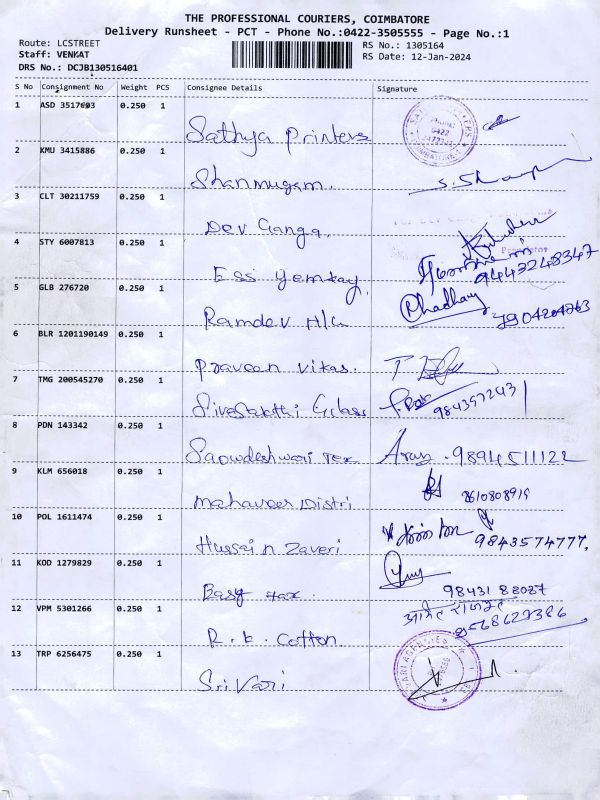 THE PROFESSIONAL COURIERS, COIMBATORE
Delivery Runsheet - PCT - Phone No.:0422-3505555 - Page No.:1
Route: LCSTREET
RS No.: 1305164
Staff: VENKAT
RS Date: 12-Jan-2024
DRS No.: DCJB130516401
S No Consignment No Weight PCS Consignee Details Signature
1 ASD 3517693 0.250 1
Sathya Printers
2 KMU 3415886 0.250 1
Shanmugam. S. Sha
3 CLT 30211759 0.250 1
Dev Ganga.
4 STY 6007813 0.250 1
Ess yemkay. 9443248347
5 GLB 276720 0.250 1
Ramdev H/C 7904204763
6 BLR 1201190149 0.250 1
Praveen Vikas.
7 TMG 200545270 0.250 1
Sivasakthi Glass 984357243
8 PDN 143342 0.250 1
Saowdeshwari Tex Arun . 9894511122
9 KLM 656018 0.250 1
Mahaveer Distri 8610808919
10 POL 1611474 0.250 1
Hussain Zaveri 9843574777.
11 KOD 1279829 0.250 1
Basy tax. 98431 88087
12 VPM 5301266 0.250 1
R. K. Cotton.
13 TRP 6256475 0.250 1
Sri Vari